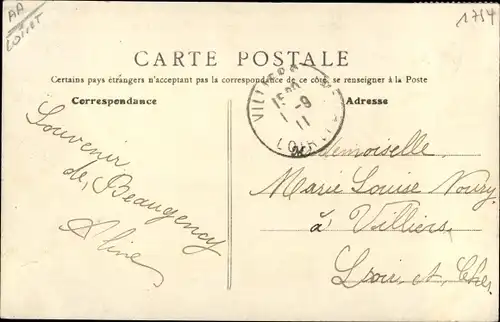 AA
Loiret
1714
CARTE POSTALE
Certains pays étrangers n'acceptant pas la correspondance de ce côté, se renseigner à la Poste
Correspondance
Adresse
Souvenir
de Beaugency
Aline
VILL
-9
11
Mademoiselle
Marie Louise Noury
à Villiers
Loir et Cher